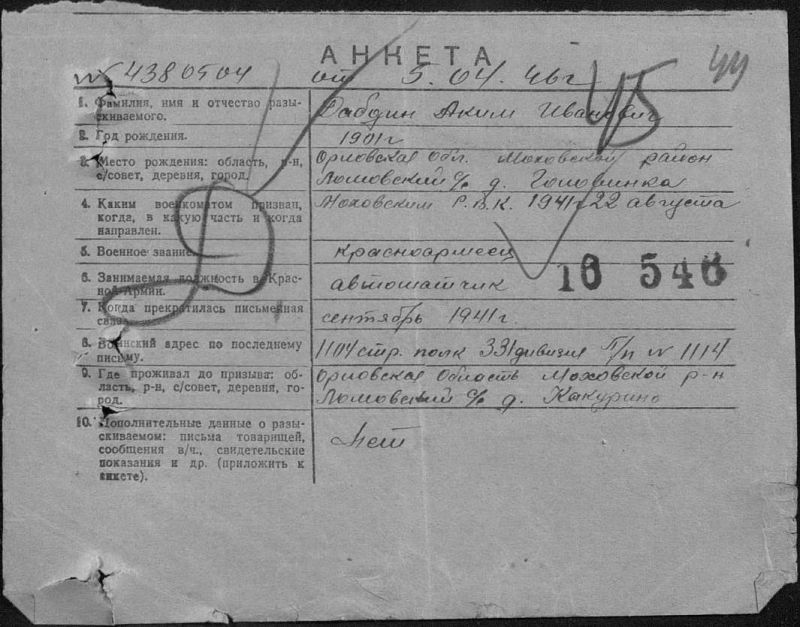 44
АНКЕТА
№ 4380504 от 5.04.46г
45
1. Фамилия, имя и отчество разы-
скиваемого.
Аким Иванович
2. Год рождения.
1901г
3. Место рождения: область, р-н,
с/совет, деревня, город.
Орловская обл. Моховской район
Ломовский с/с д. Головинка
4. Каким военкоматом призван,
когда, в какую часть и когда
направлен.
Моховским Р.В.К. 1941г 22 августа
5. Военное звание.
красноармеец
6. Занимаемая должность в Крас-
ной Армии.
автоматчик
16 546
7. Когда прекратилась письменная
связь.
сентябрь 1941г.
8. Воинский адрес по последнему
письму.
1104 стр. полк 331 дивизия П/п № 1114
9. Где проживал до призыва: об-
ласть, р-н, с/совет, деревня, го-
род.
Орловская область Моховской р-н
Ломовский с/с д. Какурино
10. Дополнительные данные о разы-
скиваемом: письма товарищей,
сообщения в/ч., свидетельские
показания и др. (приложить к
анкете).
Нет